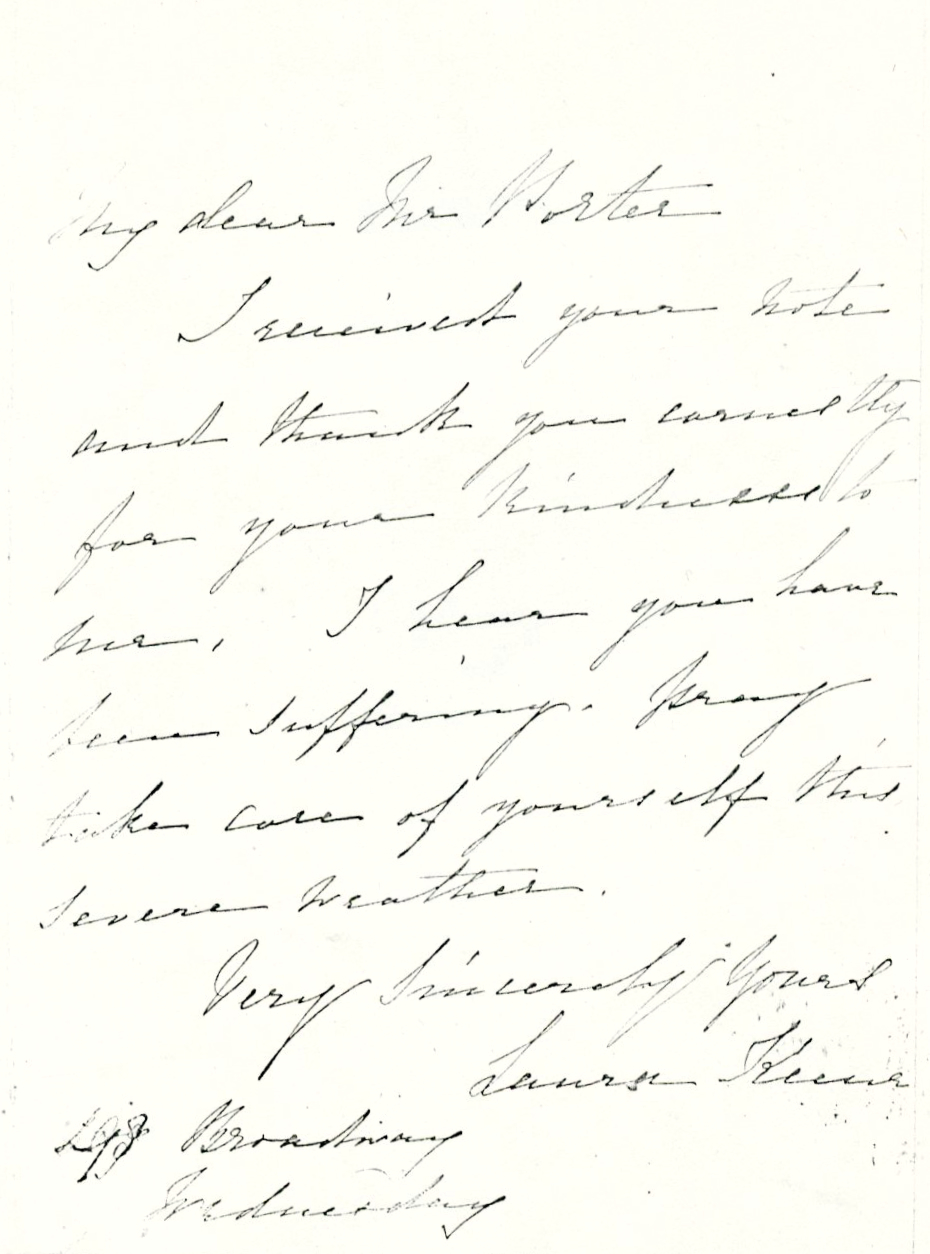 My dear Mr Porter
I received your note
and thank you earnestly
for your kindness to
me, I hear you have
been suffering. Pray
take care of yourself this
severe weather.
Very Sincerely Yours
Laura Keene
Broadway
Wednesday